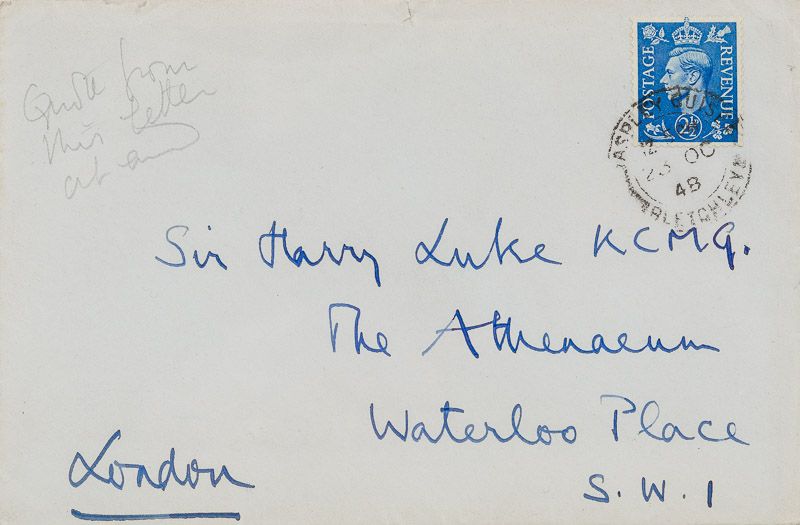 Quote from
this letter
at end
POSTAGE REVENUE
2½
ASPLEY GUISE
23 OC
48
BLETCHLEY
Sir Harry Luke KCMG.
The Athenaeum
Waterloo Place
London
S.W.1